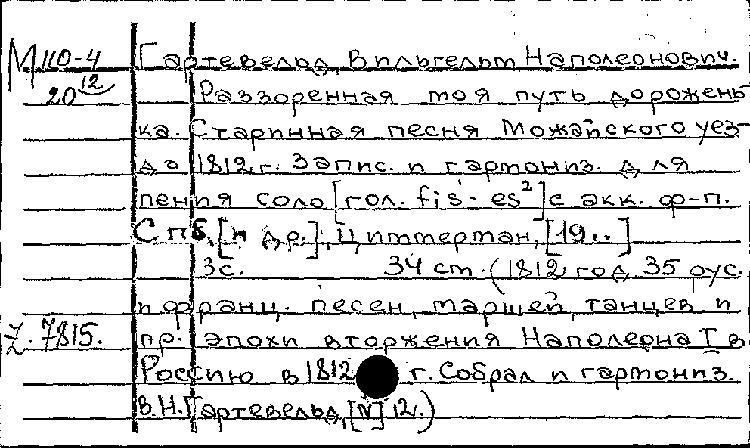 М 110-4 Гартевельд, Вильгельм Наполеонович.
20 12 Раззоренная моя путь дорожень-
ка. Старинная песня Можайского уез-
да 1812 г. Запис. и гармониз. для
пения соло [гол. fis' - es²] с акк. ф-п.
С.пб. [и др.], Циммерман, [19..]
3с. 34 cm. (1812 год. 35 рус.
и франц. песен, маршей, танцев и
Z. 7815. пр. эпохи вторжения Наполеона I в
Россию в 1812 г. Собрал и гармониз.
В.Н. Гартевельд, [N] 12.)